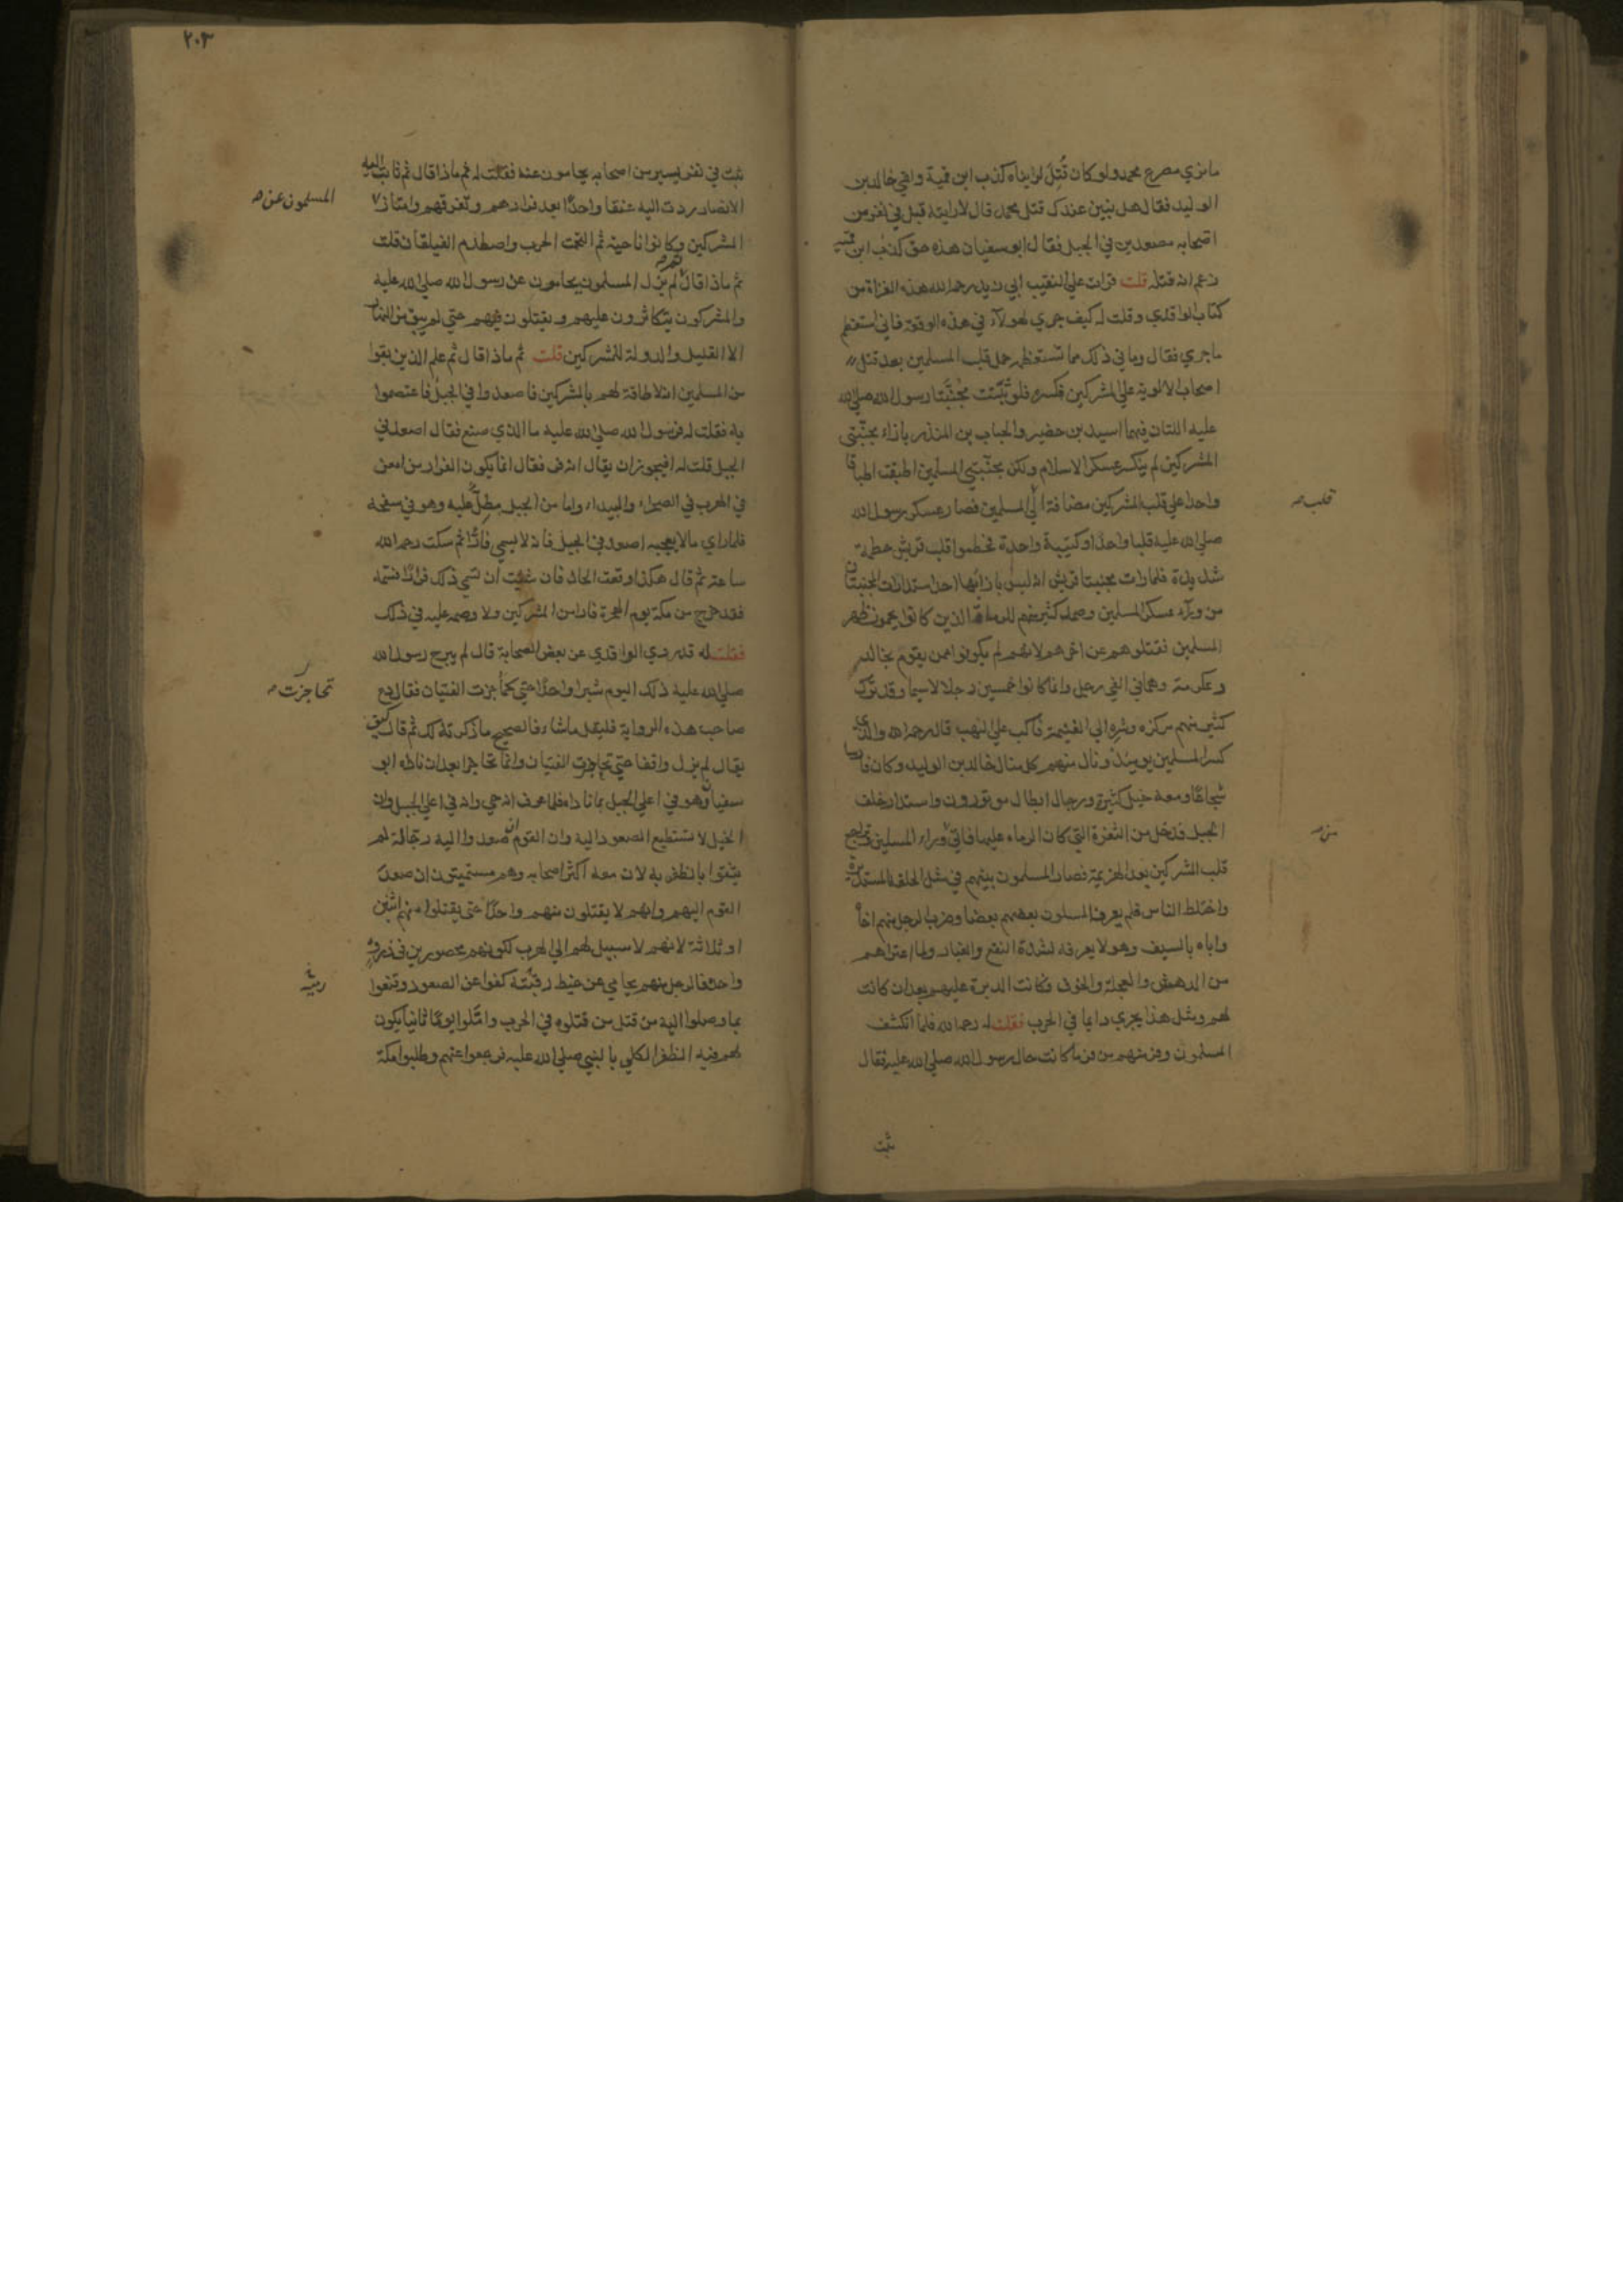 ما نري مصرع محمد ولو كان قُتِلَ لرايناه كذب ابن قمية ولقي خالد بن
الوليد فقال هل تبين عندك قتل محمد قال لا رايته قبل في نفر من
اصحابه مصعدين في الجبل فقال ابو سفيان هذه حق كذب ابن قمية
زعم انه قتله قلت قرات علي النقيب ابي زيد رحمه الله هذه الغزاة من
كتاب الواقدي وقلت له كيف جري لهولآء في هذه الوقعة فاني استعظم
ما جري فقال وما في ذلك مما تستعظمه حمل قلب المسلمين بعد قتل
اصحاب الالوية علي المشركين فكسره فلو ثَبَتَت مُجَنِّبَتا رسول الله صلي الله
عليه اللتان فيهما اسيد بن حضير والحباب بن المنذر بازاء مجنّبتي
المشركين لم ينكسر عسكر الاسلام ولكن مجنّبتي المسلمين اطبقت اطباقا
واحدا علي قلب المشركين مضافة الي المسلمين فصار عسكر رسول الله
قلب
صلي الله عليه قلبا واحدًا وكتيبة واحدة فحطموا قلب قريش حطمة
شديدة فلما رات مجنبتا قريش انه ليس بازائها احد استدارت المجنبتان
من ورآء عسكر المسلمين وصمد كثير منهم للرماة الذين كانوا يحمون ظهر
المسلمين فقتلوهم عن اخرهم لانهم لم يكونوا ممن يقوم بخالد
وعكرمة وهما في الفي رجل وانما كانوا خمسين رجلا لا سيما وقد ترك
كثير منهم مركزه وشره الي الغنيمة فاكب علي النهب قال رحمه الله والذي
كسر المسلمين يومئذ ونال منهم كل منال خالد بن الوليد وكان فارسا
شجاعًا ومعه خيل كثيرة ورجال ابطال موتورون واستدار خلف
الجبل فدخل من الثغرة التي كان الرماه عليها فاتي وراء المسلمين وتراجع
من
قلب المشركين بعد الهزيمة فصار المسلمون بينهم في مثل الحلقة المستديرة
واختلط الناس فلم يعرف المسلمون بعضهم بعضا وضرب الرجل منهم اخاه
واباه بالسيف وهو لا يعرفه لشدة النقع والغبار ولما اعتراهم
من الدهش والعجلة والخوف وكانت الدبرة عليهم بعد ان كانت
لهم ومثل هذا يجري دايما في الحرب فقلت له رحمه الله فلما انكشف
المسلمون وفر منهم من فر ما كانت حال رسول الله صلي الله عليه فقال
ثبت
٢٠٣
ثبت في نفر يسير من اصحابه يحامون عنه فقلت له ثم ماذا قال ثم ثابت اليه
الانصار وردت اليه عنقا واحدًا بعد فرارهم وتفرقهم وامتاز
المسلمون عن
المشركين وكانوا ناحية ثم التحمت الحرب واصطدم الفيلقان قلت
ثم ماذا قال لم يزل المسلمون يحامون عن رسول الله صلي الله عليه
والمشركون يتكاثرون عليهم ويقتلون فيهم حتي لم يبق من النهار
الا القليل والدولة للمشركين قلت ثم ماذا قال ثم علم الذين بقوا
من المسلمين انه لا طاقة لهم بالمشركين فاصعدوا في الجبل فاعتصموا
به فقلت له فرسول الله صلي الله عليه ما الذي صنع فقال اصعد في
الجبل قلت له افيجوز ان يقال انه فر فقال انما يكون الفرار ممن امعن
في الهرب في الصحراء والبيداء واما من الجبل مطلّ عليه وهو في سفحه
فلما راي ما لا يعجبه اصعد في الجبل فانه لا يسمي فارًّا ثم سكت رحمه الله
ساعة ثم قال هكذا وقعت الحال فان شئت ان تسمي ذلك فرارًا فسمه
فقد خرج من مكة يوم الهجرة فارا من المشركين ولا وصمة عليه في ذلك
فقلت له قد روي الواقدي عن بعض الصحابة قال لم يبرح رسول الله
صلي الله عليه ذلك اليوم شبرا واحدًا حتي تحاجزت الفئتان فقال دع
تحاجزت
صاحب هذه الرواية فليقل ما شاء فالصحيح ما ذكرته لك ثم قال كيف
يقال لم يزل واقفا حتي تحاجزت الفئتان وانما تحاجزا بعد ان ناداه ابو
سفيان وهو في اعلي الجبل بما ناداه فلما عرف انه حي وانه في اعلي الجبل وان
الخيل لا تستطيع الصعود اليه وان القوم ان صعدوا اليه رجالة لم
يثقوا بالظفر به لان معه اكثر اصحابه وهم مستميتون ان صعد
القوم اليهم وانهم لا يقتلون منهم واحدًا حتي يقتلوا منهم اثنين
او ثلاثة لانهم لا سبيل لهم الي الهرب لكونهم محصورين في ذرو
واحد فالرجل منهم يحامي عن خيط رقبته كفوا عن الصعود وقنعوا
بما وصلوا اليه من قتل من قتلوه في الحرب وامّلوا يومًا ثانيا يكون
لهم فيه الظفر الكلي بالنبي صلي الله عليه فرجعوا عنهم وطلبوا مكة